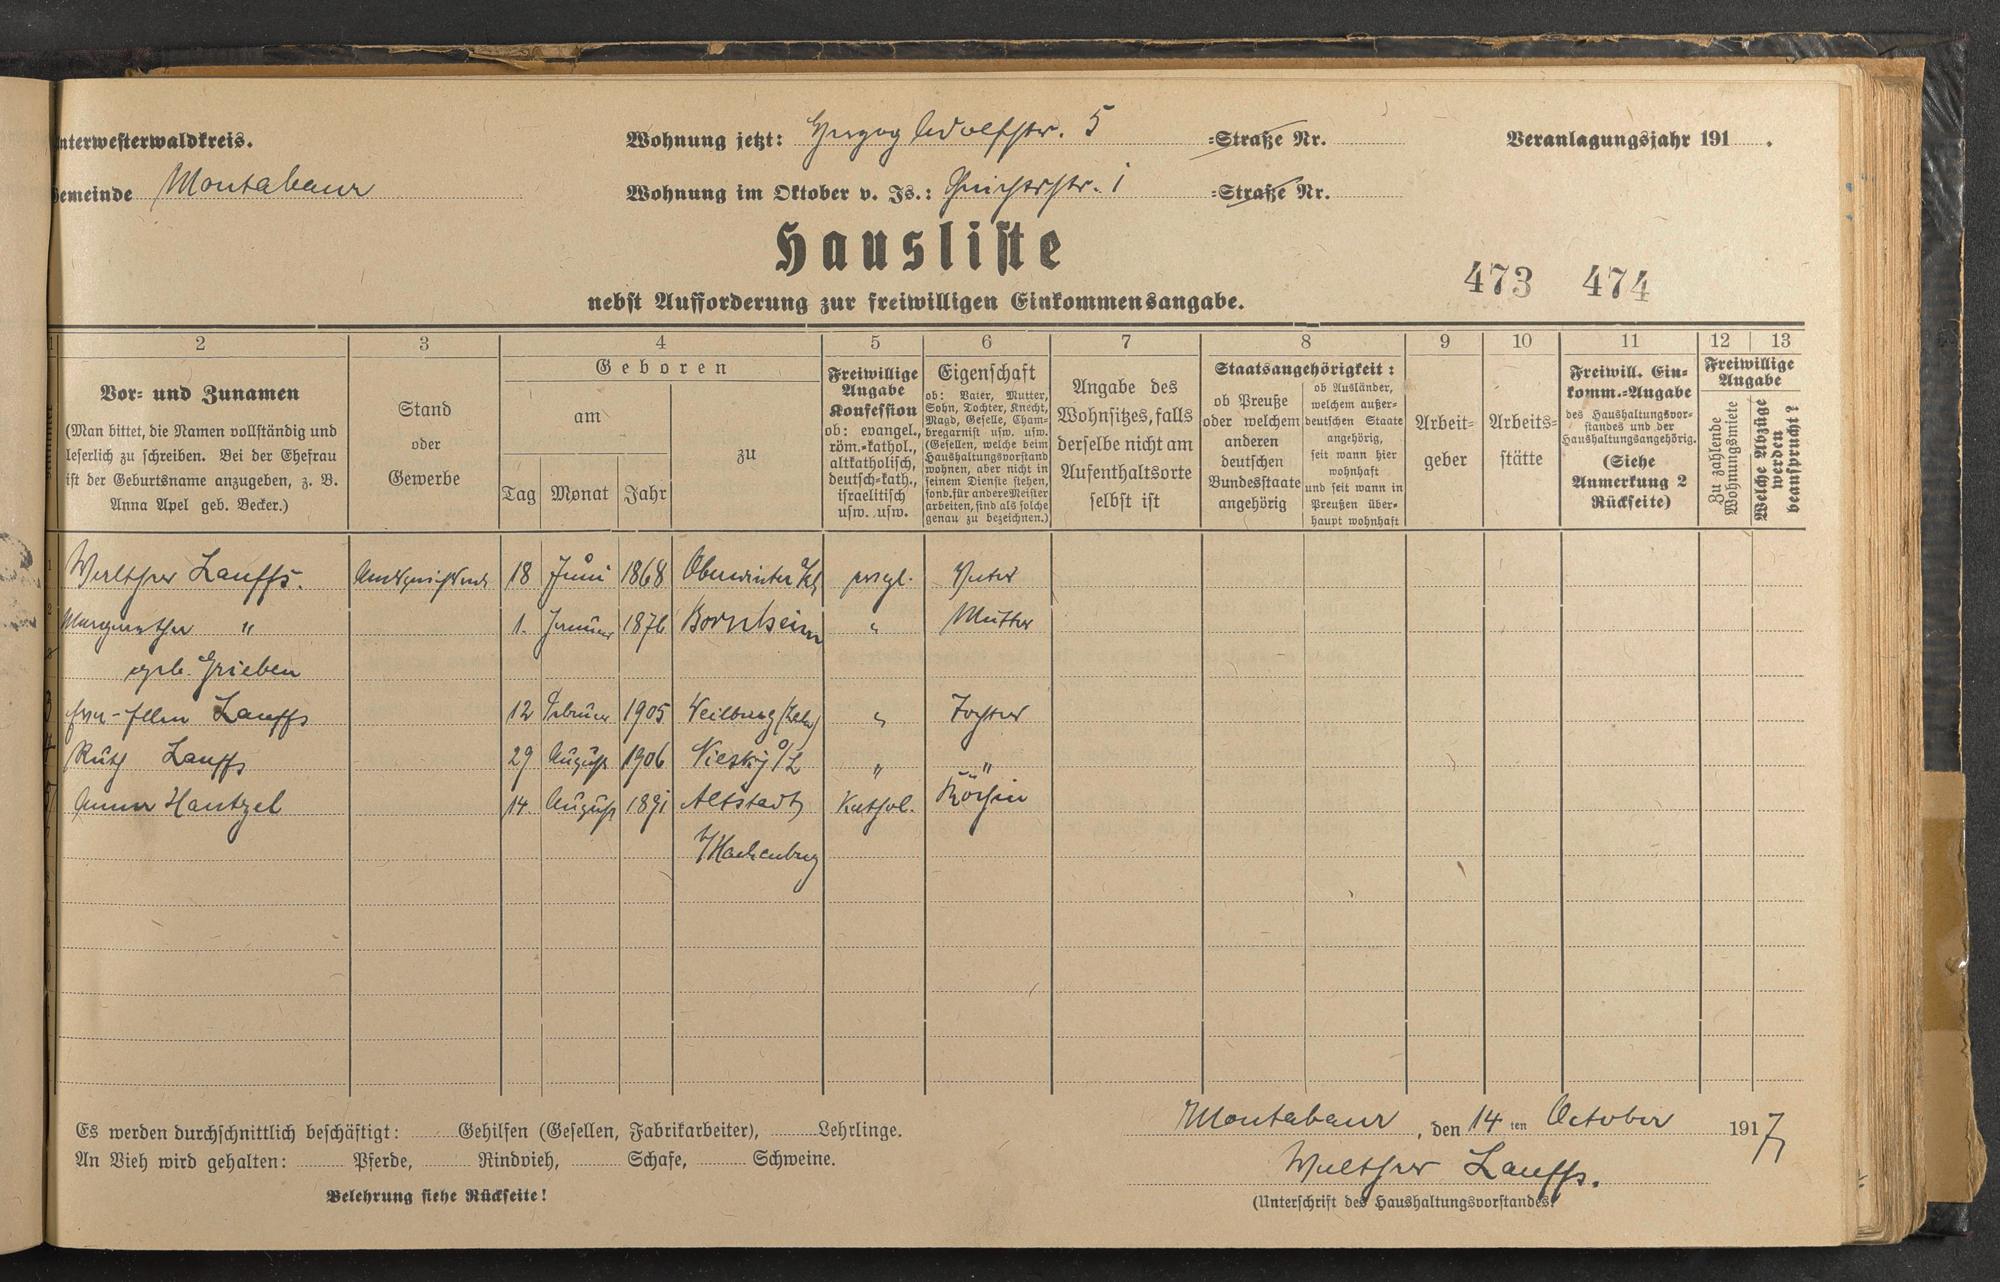 Unterwesterwaldkreis.
Wohnung jetzt: Herzog Adolfstr. 5 =Straße Nr.
Veranlagungsjahr 191 .
Gemeinde Montabaur
Wohnung im Oktober v. Js.: Gerichtsstr. 1 =Straße Nr.
Hausliste
473 474
nebst Aufforderung zur freiwilligen Einkommensangabe.
1 2 3 4 5 6 7 8 9 10 11 12 13
Vor- und Zunamen
(Man bittet, die Namen vollständig und
leserlich zu schreiben. Bei der Ehefrau
ist der Geburtsname anzugeben, z. B.
Anna Apel geb. Becker.)
Stand
oder
Gewerbe
Geboren
am
Tag Monat Jahr
zu
Freiwillige
Angabe
Konfession
ob: evangel.,
röm.-kathol.,
altkatholisch,
deutsch-kath.,
israelitisch
usw. usw.
Eigenschaft
ob: Vater, Mutter,
Sohn, Tochter, Knecht,
Magd, Geselle, Cham-
bregarnist usw. usw.
(Gesellen, welche beim
Haushaltungsvorstand
wohnen, aber nicht in
seinem Dienste stehen,
sond. für andere Meister
arbeiten, sind als solche
genau zu bezeichnen.)
Angabe des
Wohnsitzes, falls
derselbe nicht am
Aufenthaltsorte
selbst ist
Staatsangehörigkeit:
ob Preuße
oder welchem
anderen
deutschen
Bundesstaate
angehörig
ob Ausländer,
welchem außer-
deutschen Staate
angehörig,
seit wann hier
wohnhaft
und seit wann in
Preußen über-
haupt wohnhaft
Arbeit-
geber
Arbeits-
stätte
Freiwill. Ein-
komm.-Angabe
des Haushaltungsvor-
standes und der
Haushaltungsangehörig.
(Siehe
Anmerkung 2
Rückseite)
Freiwillige
Angabe
Zu zahlende
Wohnungsmiete
Welche Abzüge
werden
beansprucht?
1 Walther Lauffs. Amtsgerichtsrat 18 Juni 1868 Oberwinter evgl. Vater
2 Margarethe " 1. Januar 1876 Bornheim " Mutter
geb. Grieben
3 Eva-Ellen Lauffs 12 Februar 1905 Weilburg (Lahn) " Tochter
4 Ruth Lauffs 29 August 1906 Niesky O/L " "
5 Anna Hantzel 14. August 1891 Altstadt Kathol. Köchin
b/Hachenburg
Es werden durchschnittlich beschäftigt: Gehilfen (Gesellen, Fabrikarbeiter), Lehrlinge.
An Vieh wird gehalten: Pferde, Rindvieh, Schafe, Schweine.
Belehrung siehe Rückseite!
Montabaur, den 14 ten October 1917
Walther Lauffs.
(Unterschrift des Haushaltungsvorstandes)